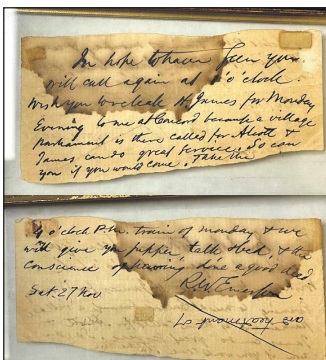 In hope to have seen you
will call again at o'clock.
Wish you to H. James for Monday
Evening to me at Concord because a village
Parliament is there called for Alcott &
James can do great service. So can
you if you would come. Take the
4 o'clock P.M. train of monday & we
will give you supper, talk & bed, & the
conscience of having done a good deed.
R.W. Emerson.
Sat. 27 Nov